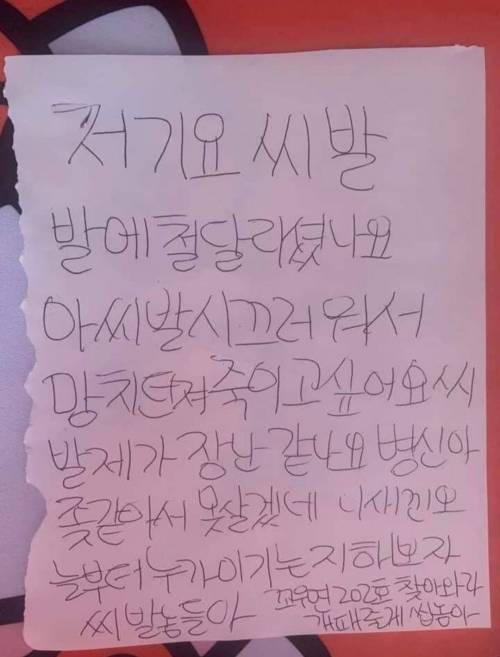 저기요 씨발
발에철달리셨나요
아씨발시끄러워서
망치던져죽이고싶어요씨
발제가 장난 같나요 병신아
좆같아서 못살겠네 니새낀오
늘부터누가이기는지해보자
씨발놈들아
꼬우면 202호 찾아와라
개패줄게 씹놈아